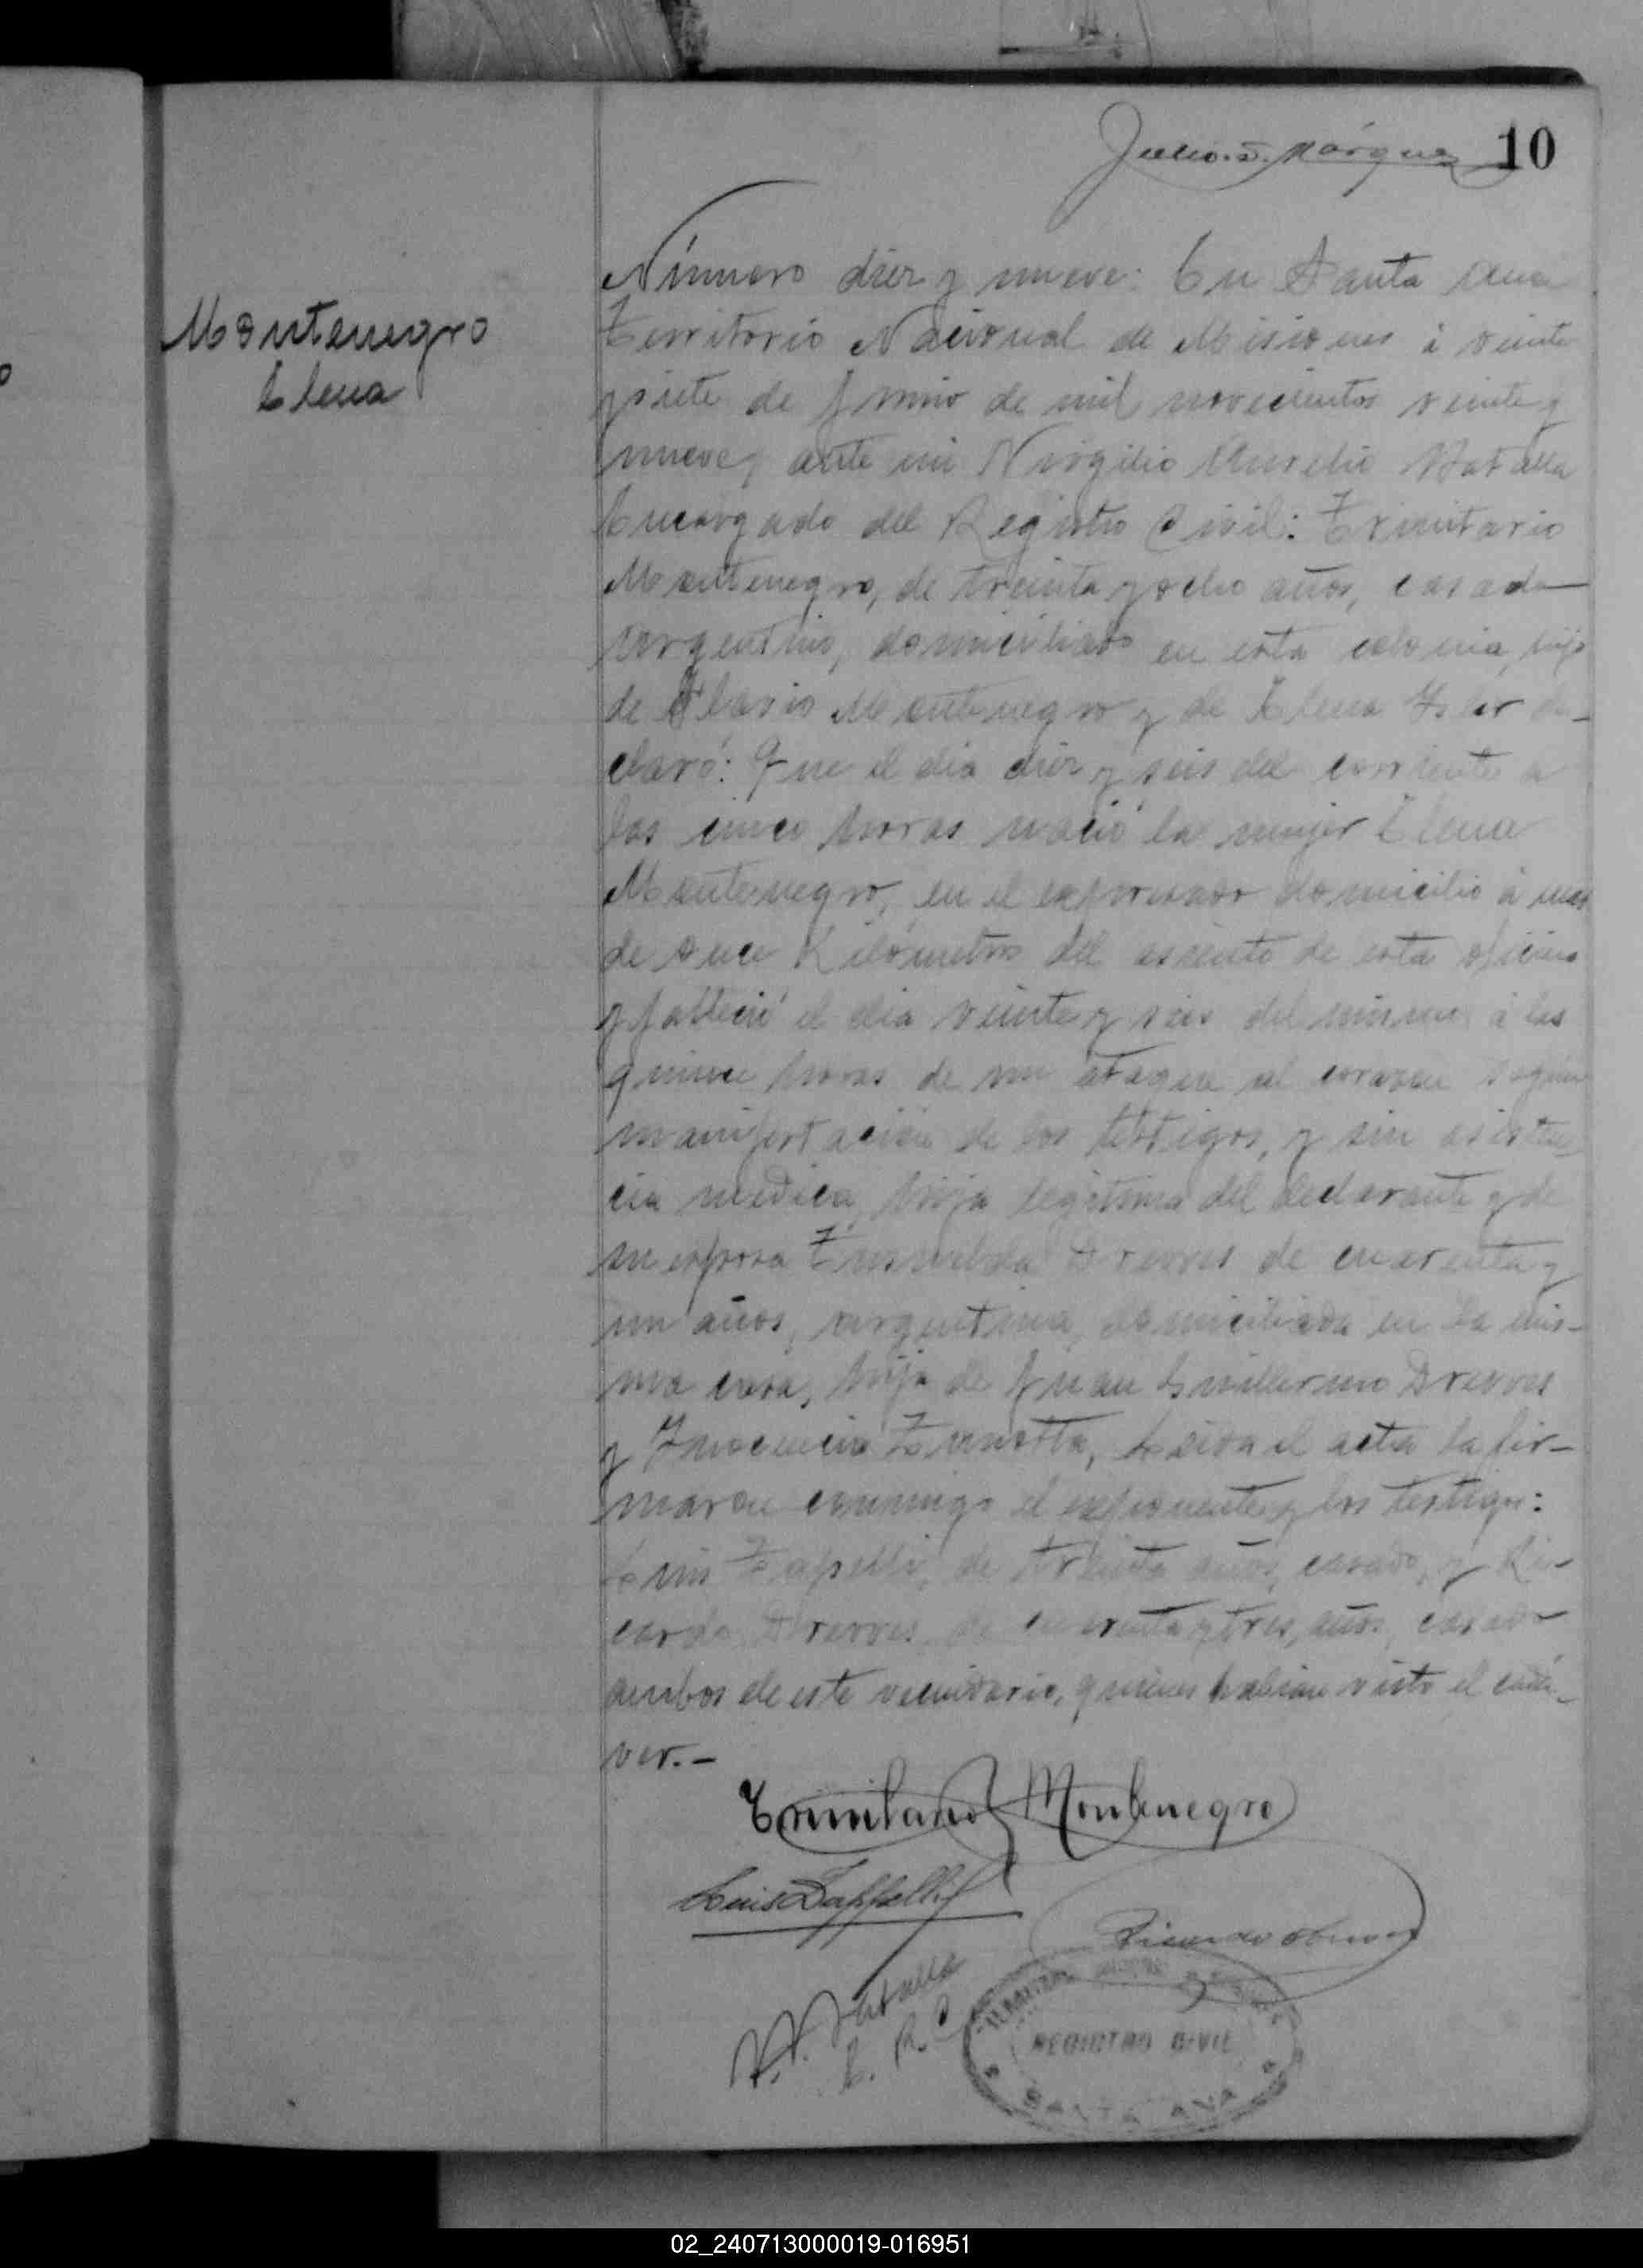 10
Montenegro
Elena
Número diez y nueve: En Santa Ana
Territorio Nacional de Misiones á veinte
y siete de Junio de mil novecientos veinte y
nueve, ante mi Virgilio Aurelio Batalla
Encargado del Registro Civil: Trinitario
Montenegro, de treinta y ocho años, casado
argentino, domiciliado en esta colonia, hijo
de Montenegro y de Elena de-
claró: Que el dia diez y seis del corriente a
las cinco horas nació la mujer Elena
Montenegro, en el expresado domicilio á mas
de once Kilómetros del asiento de esta oficina
y falleció el dia veinte y seis del mismo á las
quince horas de un ataque al corazon segun
manifestación de los testigos, y sin asisten
cia medica, hija legitima del declarante y de
su esposa Drewes de cuarenta y
un años, argentina, domiciliada en la mis-
ma casa, hija de Juan Guillermo Drewes
y Inocencia Leida el acta la fir-
maron conmigo el exponente y los testigos:
Luis de treinta años, casado, y Ri-
cardo Drewes de cuarenta y tres, años, casado
ambos de este vecindario, quienes habian visto el cadá-
ver.-
Trinitario Montenegro
Luis
Ricardo
V. A. Batalla
E. R. C
REGISTRO CIVIL
SANTA ANA
02_240713000019-016951